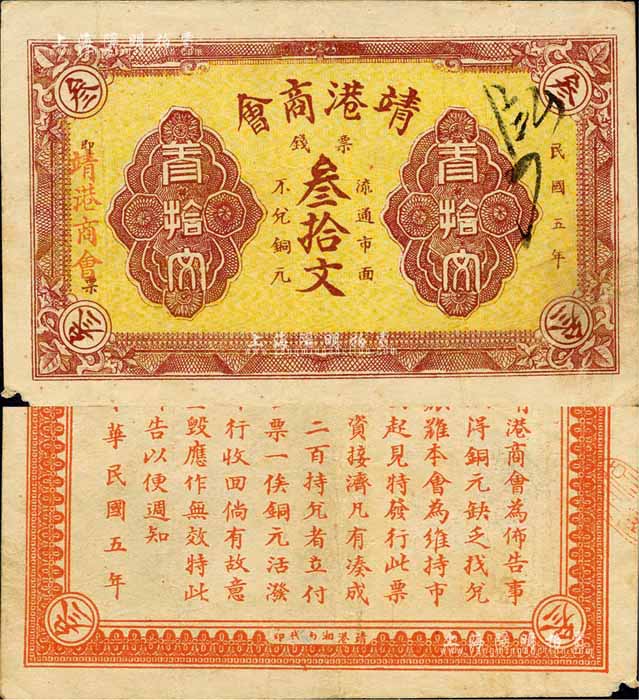 上海陽明拍賣
靖港商會
民國五年
票錢
流通市面
叁拾文
不兌銅元
叁
叁
叁
叁
拾
文
拾
文
印靖港商會票
上海陽明拍賣
港商會為佈告事
得銅元缺乏找兌
雖本會為維持市
起見特發行此票
資接濟凡有湊成
二百持兌者立付
票一俟銅元活潑
行收回倘有故意
毀應作無效特此
告以便週知
華民國五年
叁
叁
靖港湘內代印
上海陽明拍賣